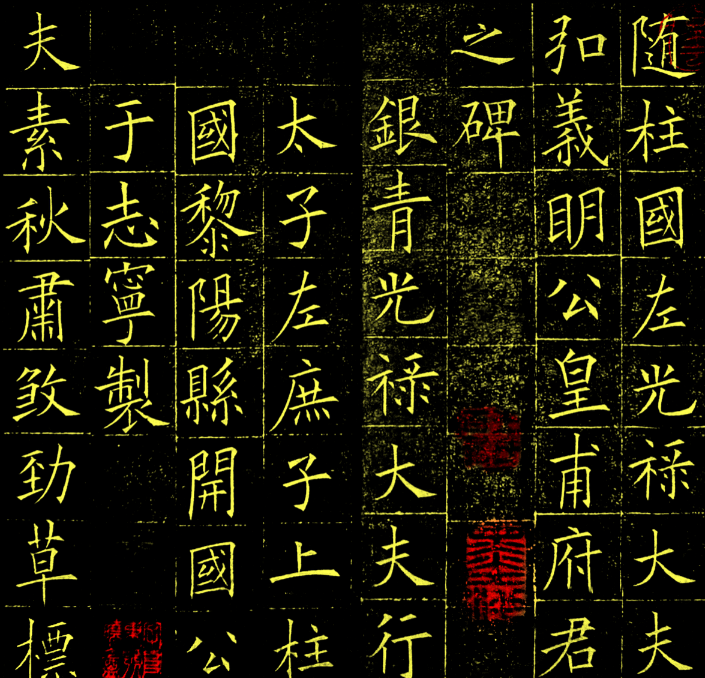 随柱國左光禄大夫
弘義眀公皇甫府君
之碑
銀青光禄大夫行
太子左庶子上柱
國黎陽縣開國公
于志寧製
夫素秋肅煞勁草標